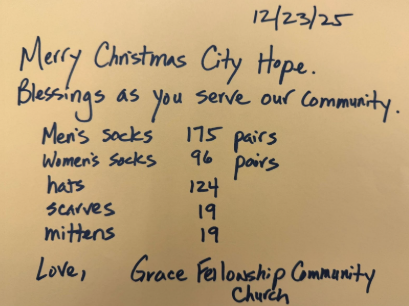 12/23/25
Merry Christmas City Hope.
Blessings as you serve our community.
Men's socks 175 pairs
Women's socks 96 pairs
hats 124
scarves 19
mittens 19
Love, Grace Fellowship Community
Church